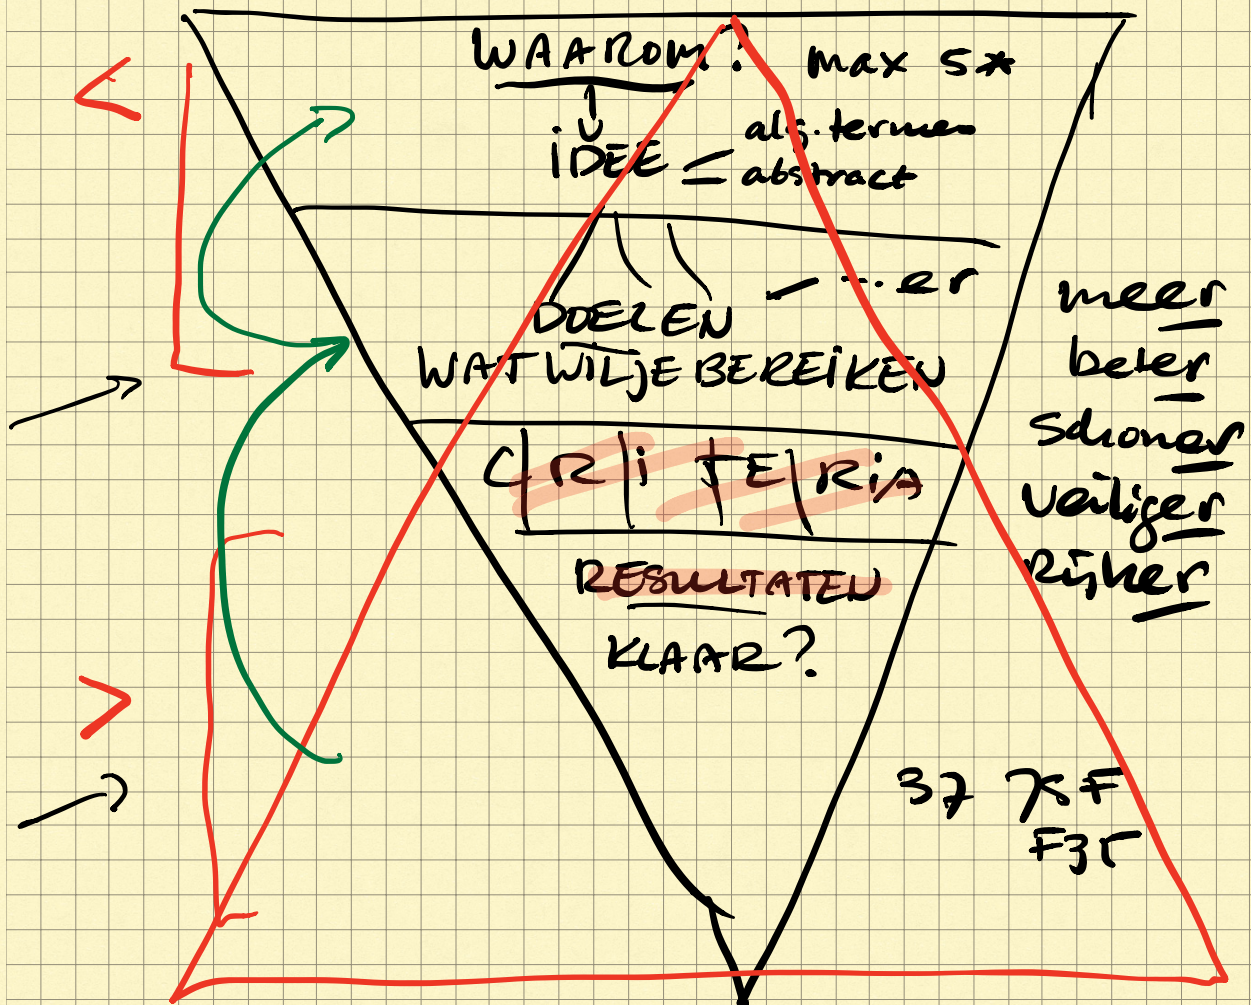 WAAROM? max 5*
IDEE = alg. termen
abstract
DOELEN - ...er
WAT WIL JE BEREIKEN
CRITERIA
RESULTATEN
KLAAR?
meer
beter
schoner
veiliger
Rijker
37 75F
F35